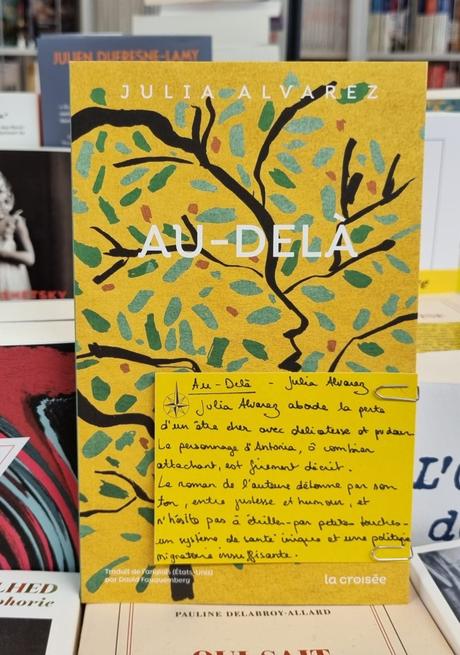 JULIEN DUFRESNE-LAMY
JULIA ALVAREZ
AU-DELÀ
Au-Delà - Julia Alvarez
Jolia Alvarez aborde la perte
d'un être cher avec délicatesse et pudeur
Le personnage d'Antonia, ô combien
attachant, est finement décrit.
Le roman de l'auteure détonne par son
ton, entre justesse et humour, et
n'hésite pas à étriller - par petites touches -
un système de santé inique et une politique
migratoire insuffisante.
Traduit de l'anglais (États-Unis)
par David Fauquemberg
la croisée
L'
d
PAULINE DELABROY-ALLARD
QUI SAIT